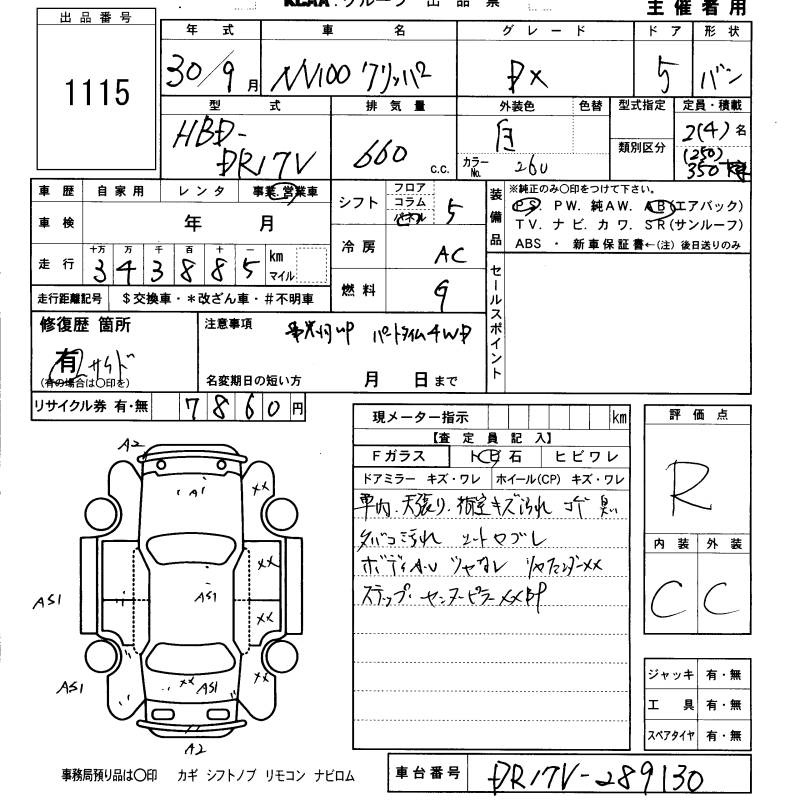 KCAA.グループ 出品票
主催者用
出品番号
1115
年式 車名 グレード ドア 形状
30/9月 NV100 クリッパー DX 5 バン
型式 排気量 外装色 色替 型式指定 定員・積載
HBD-
DR17V
660 c.c.
白
カラーNo. 26U
類別区分
2(4)名
(250)
350
車歴 自家用 レンタ 事業.営業車
車検 年 月
走行 十万 万 千 百 十 一 km
343885 マイル
走行距離記号 $交換車・*改ざん車・#不明車
シフト フロア コラム パネル 5
冷房 AC
燃料 G
装備品
※純正のみ○印をつけて下さい。
PS. PW. 純AW. AB(エアバック)
TV. ナビ. カワ. SR(サンルーフ)
ABS ・ 新車保証書←(注)後日送りのみ
セールスポイント
修復歴 箇所
有 サイド
(有の場合は○印を)
注意事項
パートタイム4WD
名変期日の短い方 月 日まで
リサイクル券 有・無 7860円
現メーター指示 km
【査定員記入】
Fガラス トビ石 ヒビワレ
ドアミラー キズ・ワレ ホイール(CP) キズ・ワレ
車内.天張り.荷室キズ汚れ 臭い
タバコ汚れ シートヤブレ
ボディ ツヤなし リヤフェンダーXX
ステップ・センターピラーXXBP
評価点
R
内装 外装
C C
ジャッキ 有・無
工具 有・無
スペアタイヤ 有・無
A2
A51
XX
XX
A51
A51
XX
A51
XX
A51
XX
A2
事務局預り品は○印 カギ シフトノブ リモコン ナビロム
車台番号 DR17V-289130